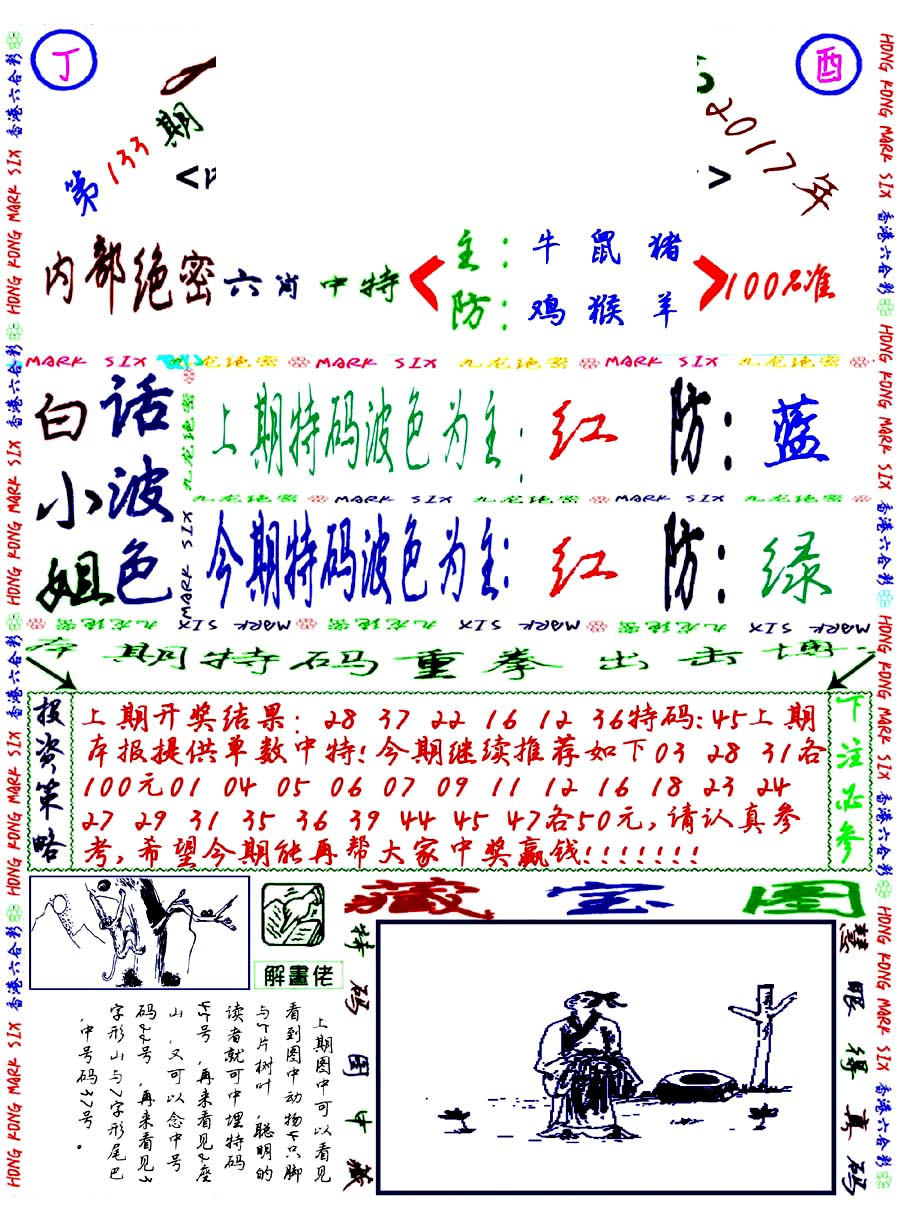 丁
酉
第133期
2017年
内部绝密六肖中特
主：牛 鼠 猪
防：鸡 猴 羊
100%准
MARK SIX 九龙绝密 MARK SIX 九龙绝密 MARK SIX 九龙绝密
白小姐
话波色
上期特码波色为主：红 防：蓝
九龙绝密 MARK SIX 九龙绝密 MARK SIX 九龙绝密
今期特码波色为主：红 防：绿
九龙绝密 MARK SIX 九龙绝密 MARK SIX 九龙绝密 MARK SIX
期特码重拳出击
投资策略
上期开奖结果：28 37 22 16 12 36特码：45上期
本报提供单数中特！今期继续推荐如下03 28 31各
100元01 04 05 06 07 09 11 12 16 18 23 24
27 29 31 35 36 39 44 45 47各50元，请认真参
考，希望今期能再帮大家中奖赢钱！！！！！！！
下注必参
解畫佬
藏宝图
上期图中可以看见
看到图中动物4只脚
与5片树叶，聪明的
读者就可中埋特码
45号，再来看见2座
山，又可以念中号
码22号，再来看见3
字形山与7字形尾巴
，中号码37号。
特码图中藏
慧眼得真码
香港六合彩 HONG KONG MARK SIX 香港六合彩 HONG KONG MARK SIX 香港六合彩 HONG KONG MARK SIX 香港六合彩 HONG KONG MARK SIX
HONG KONG MARK SIX 香港六合彩 HONG KONG MARK SIX 香港六合彩 HONG KONG MARK SIX 香港六合彩 HONG KONG MARK SIX 香港六合彩